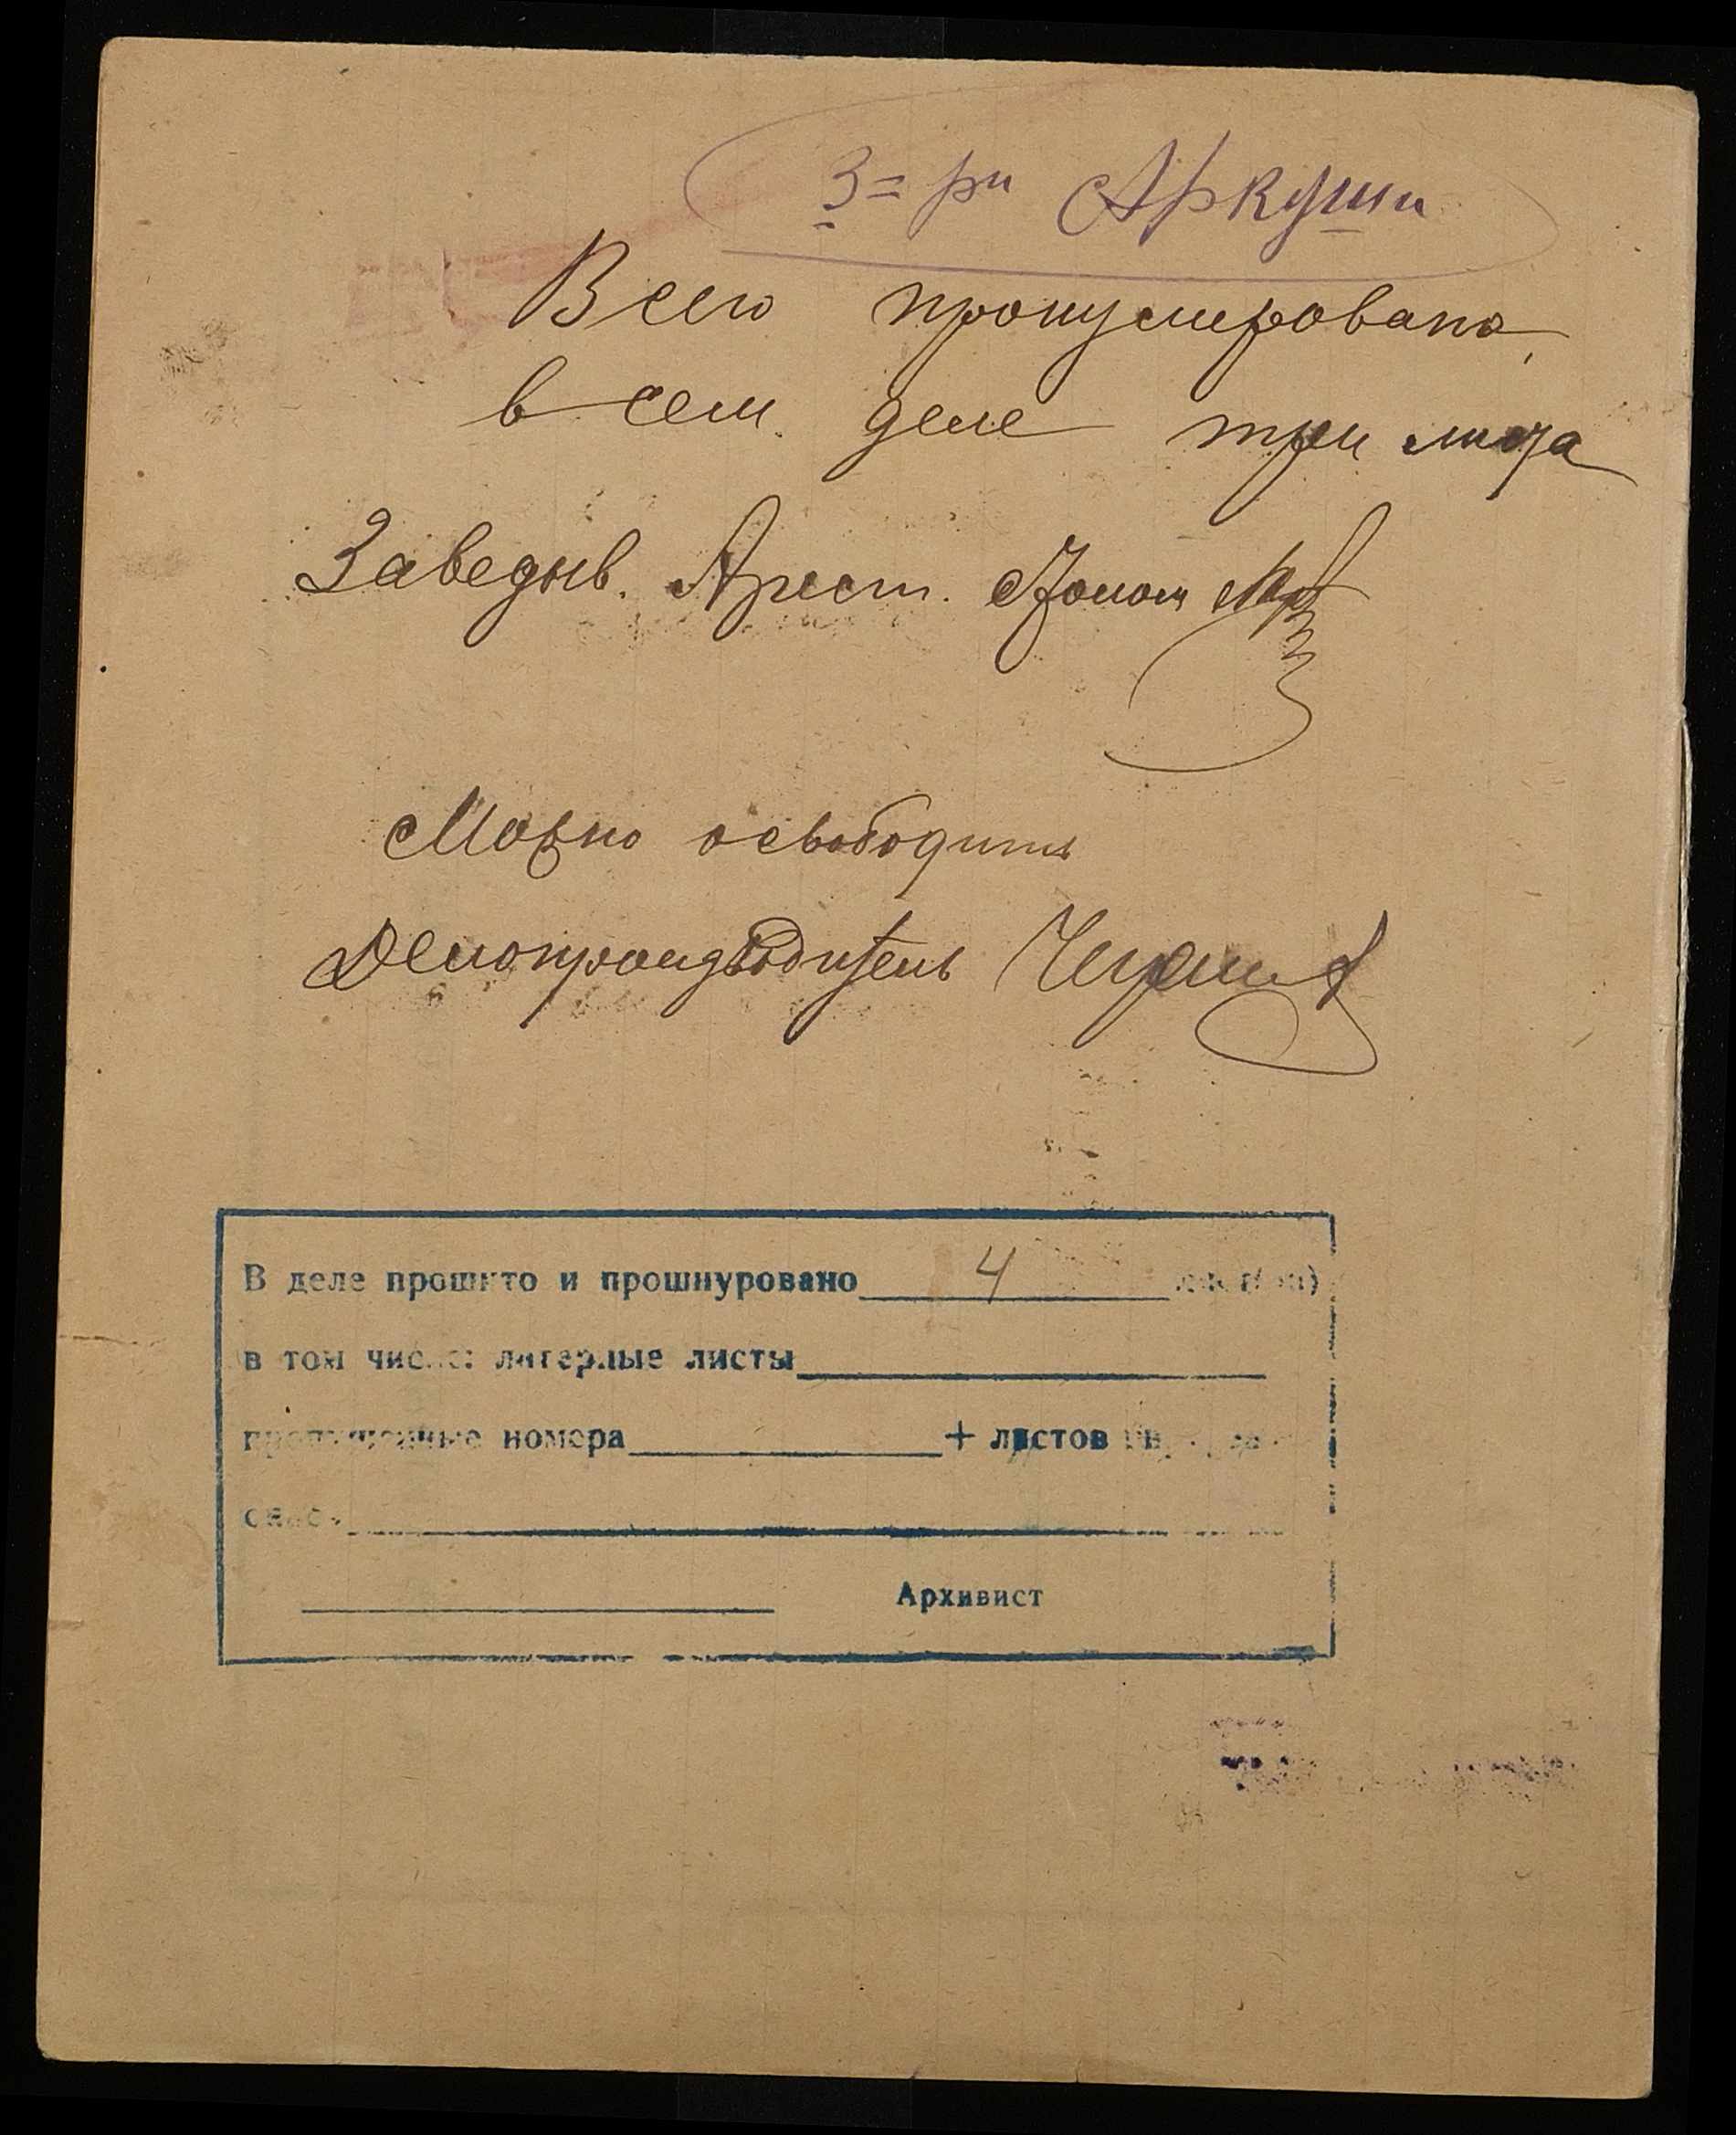 3=ри Аркуши
Всего пронумеровано
в сем деле три листа
Заведыв. Арест. Домом
Можно освободить
Делопроизводитель
В деле прошито и прошнуровано 4 лист(ов)
в том числе: литерные листы
пропущенные номера + листов
Архивист